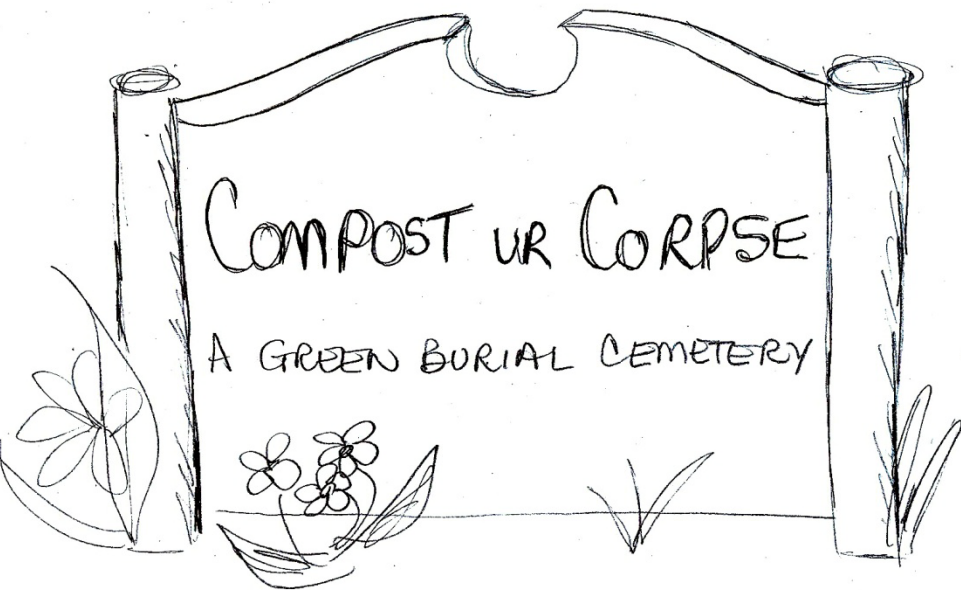 COMPOST UR CORPSE
A GREEN BURIAL CEMETERY